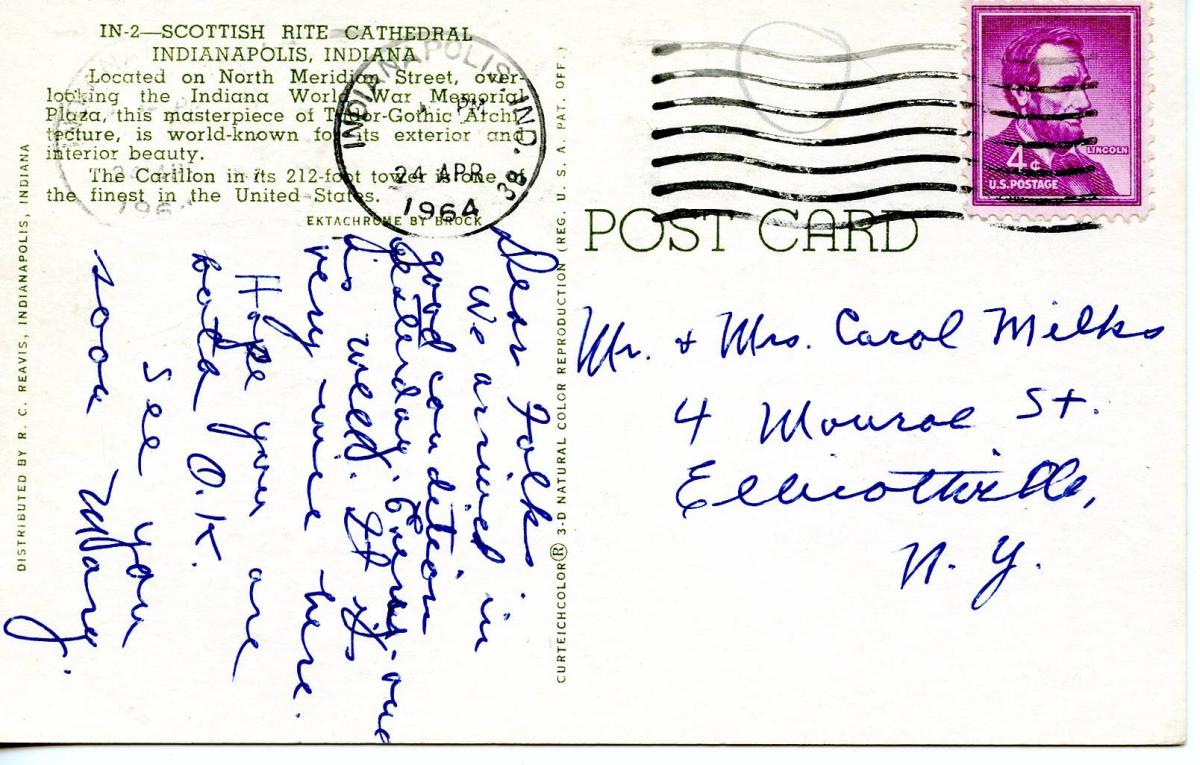 IN-2—SCOTTISH RITE CATHEDRAL
INDIANAPOLIS, INDIANA
Located on North Meridian Street, over-
looking the Indiana World War Memorial
Plaza, this masterpiece of Tudor-Gothic Archi-
tecture, is world-known for its exterior and
interior beauty.
The Carillon in its 212-foot tower is one of
the finest in the United States.
EKTACHROME BY BROCK
DISTRIBUTED BY R. C. REAVIS, INDIANAPOLIS, INDIANA
INDIANAPOLIS, IND. 38
PM
24 APR
1964
Dear Folks
We arrived in
good condition
yesterday. Every-one
is well. It is
very nice here.
Hope you are
both O.K.
See you
soon Mary.
CURTEICHCOLOR® 3-D NATURAL COLOR REPRODUCTION (REG. U. S. A. PAT. OFF.)
POST CARD
LINCOLN
4¢
U.S. POSTAGE
Mr. + Mrs. Carol Milks
4 Monroe St.
Ellicottville,
N. Y.